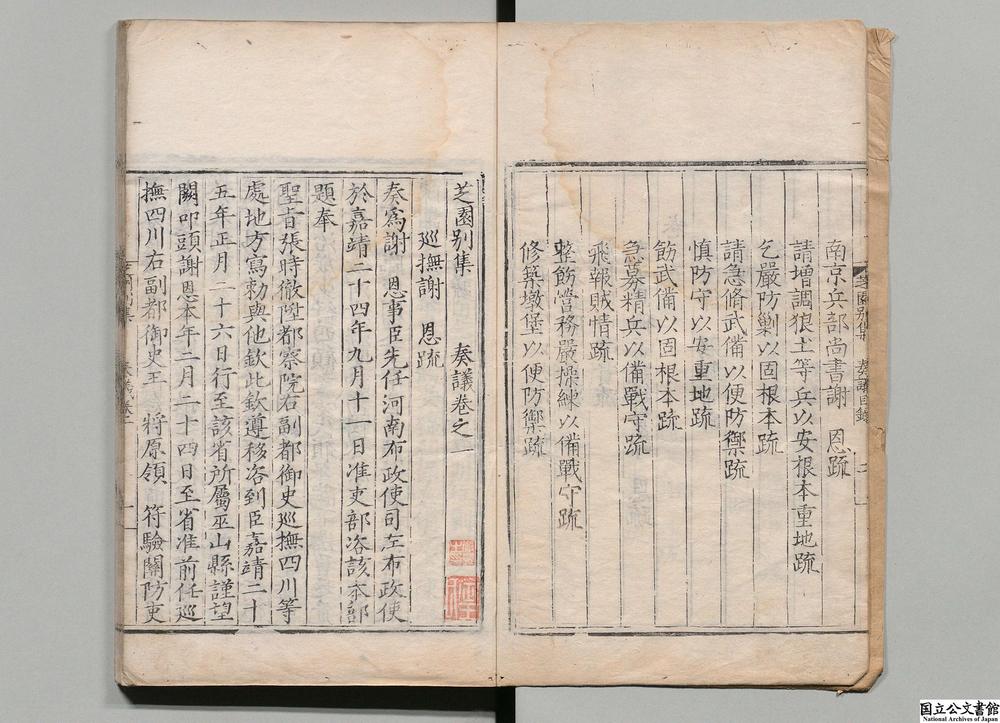 南京兵部尚書謝　恩疏
請增調狼土等兵以安根本重地疏
乞嚴防剿以固根本疏
請急脩武備以便防禦疏
慎防守以安重地疏
飭武備以固根本疏
急募精兵以備戰守疏
飛報賊情疏
整飭營務嚴操練以備戰守疏
修築墩堡以便防禦疏
芝園別集　　奏議卷之一
巡撫謝　恩疏
奏爲謝　恩事臣先任河南布政使司左布政使
於嘉靖二十四年九月十一日准吏部咨該本部
題奉
聖旨張時徹陞都察院右副都御史巡撫四川等
處地方寫勑與他欽此欽遵移咨到臣嘉靖二十
五年正月二十六日行至該省所屬巫山縣謹望
闕叩頭謝恩本年二月二十四日至省准前任巡
撫四川右副都御史王　將原領　符驗關防吏
国立公文書館
National Archives of Japan